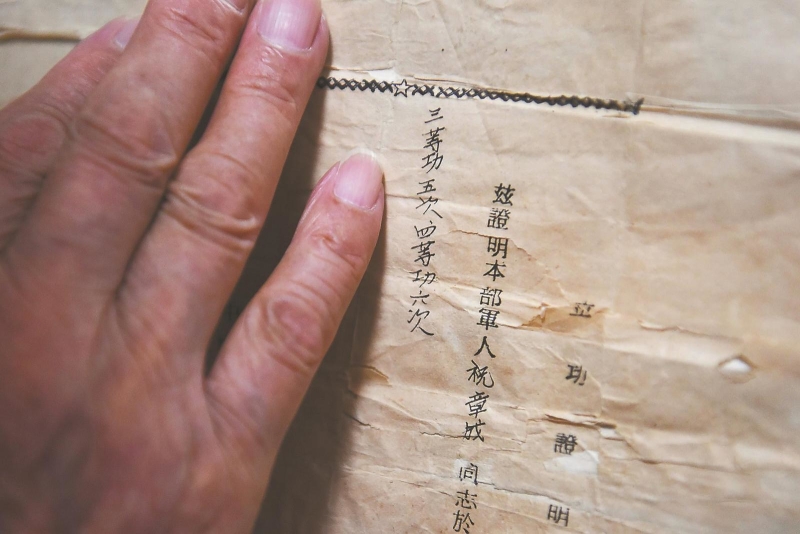 立功證明
茲證明本部軍人祝章成同志於
三等功五次、四等功六次